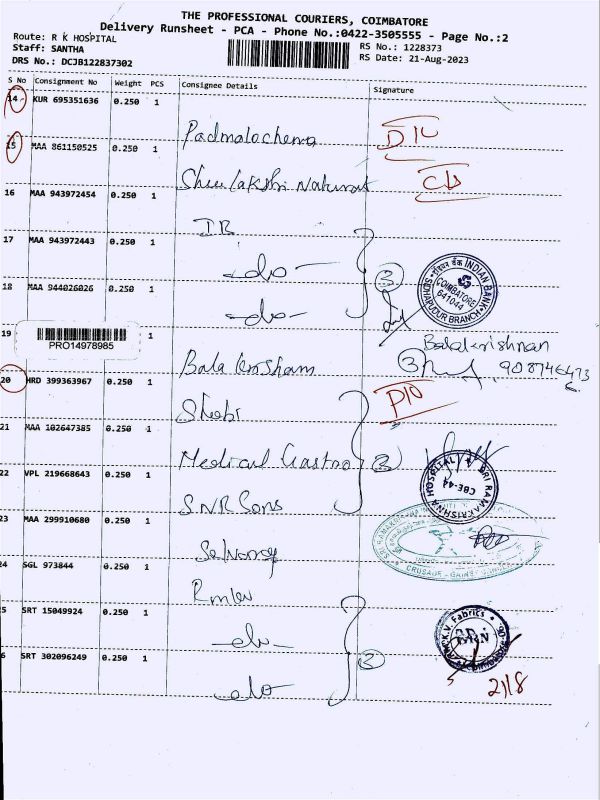 THE PROFESSIONAL COURIERS, COIMBATORE
Delivery Runsheet - PCA - Phone No.:0422-3505555 - Page No.:2
Route: R K HOSPITAL
Staff: SANTHA
DRS No.: DCJB122837302
RS No.: 1228373
RS Date: 21-Aug-2023
S No Consignment No Weight PCS Consignee Details Signature
14 KUR 695351636 0.250 1
Padmalochena D/L
15 MAA 861150525 0.250 1
16 MAA 943972454 0.250 1
IB
17 MAA 943972443 0.250 1
-do-
18 MAA 944026026 0.250 1
-do- 3
इंडियन बैंक INDIAN BANK
COIMBATORE
641044
SIDHAPUDUR BRANCH
19 PRO14978985 1
Bala Balakrishnan
20 HRD 399363967 0.250 1
Shobi
21 MAA 102647385 0.250 1
Medical Gastro
22 VPL 219668643 0.250 1
S.N.R Sons
SRI RAMAKRISHNA HOSPITAL
CBE-44
23 MAA 299910680 0.250 1
24 SGL 973844 0.250 1
5 SRT 15049924 0.250 1
-do-
6 SRT 302096249 0.250 1
-do- 2
K.V. Fabrics
21/8